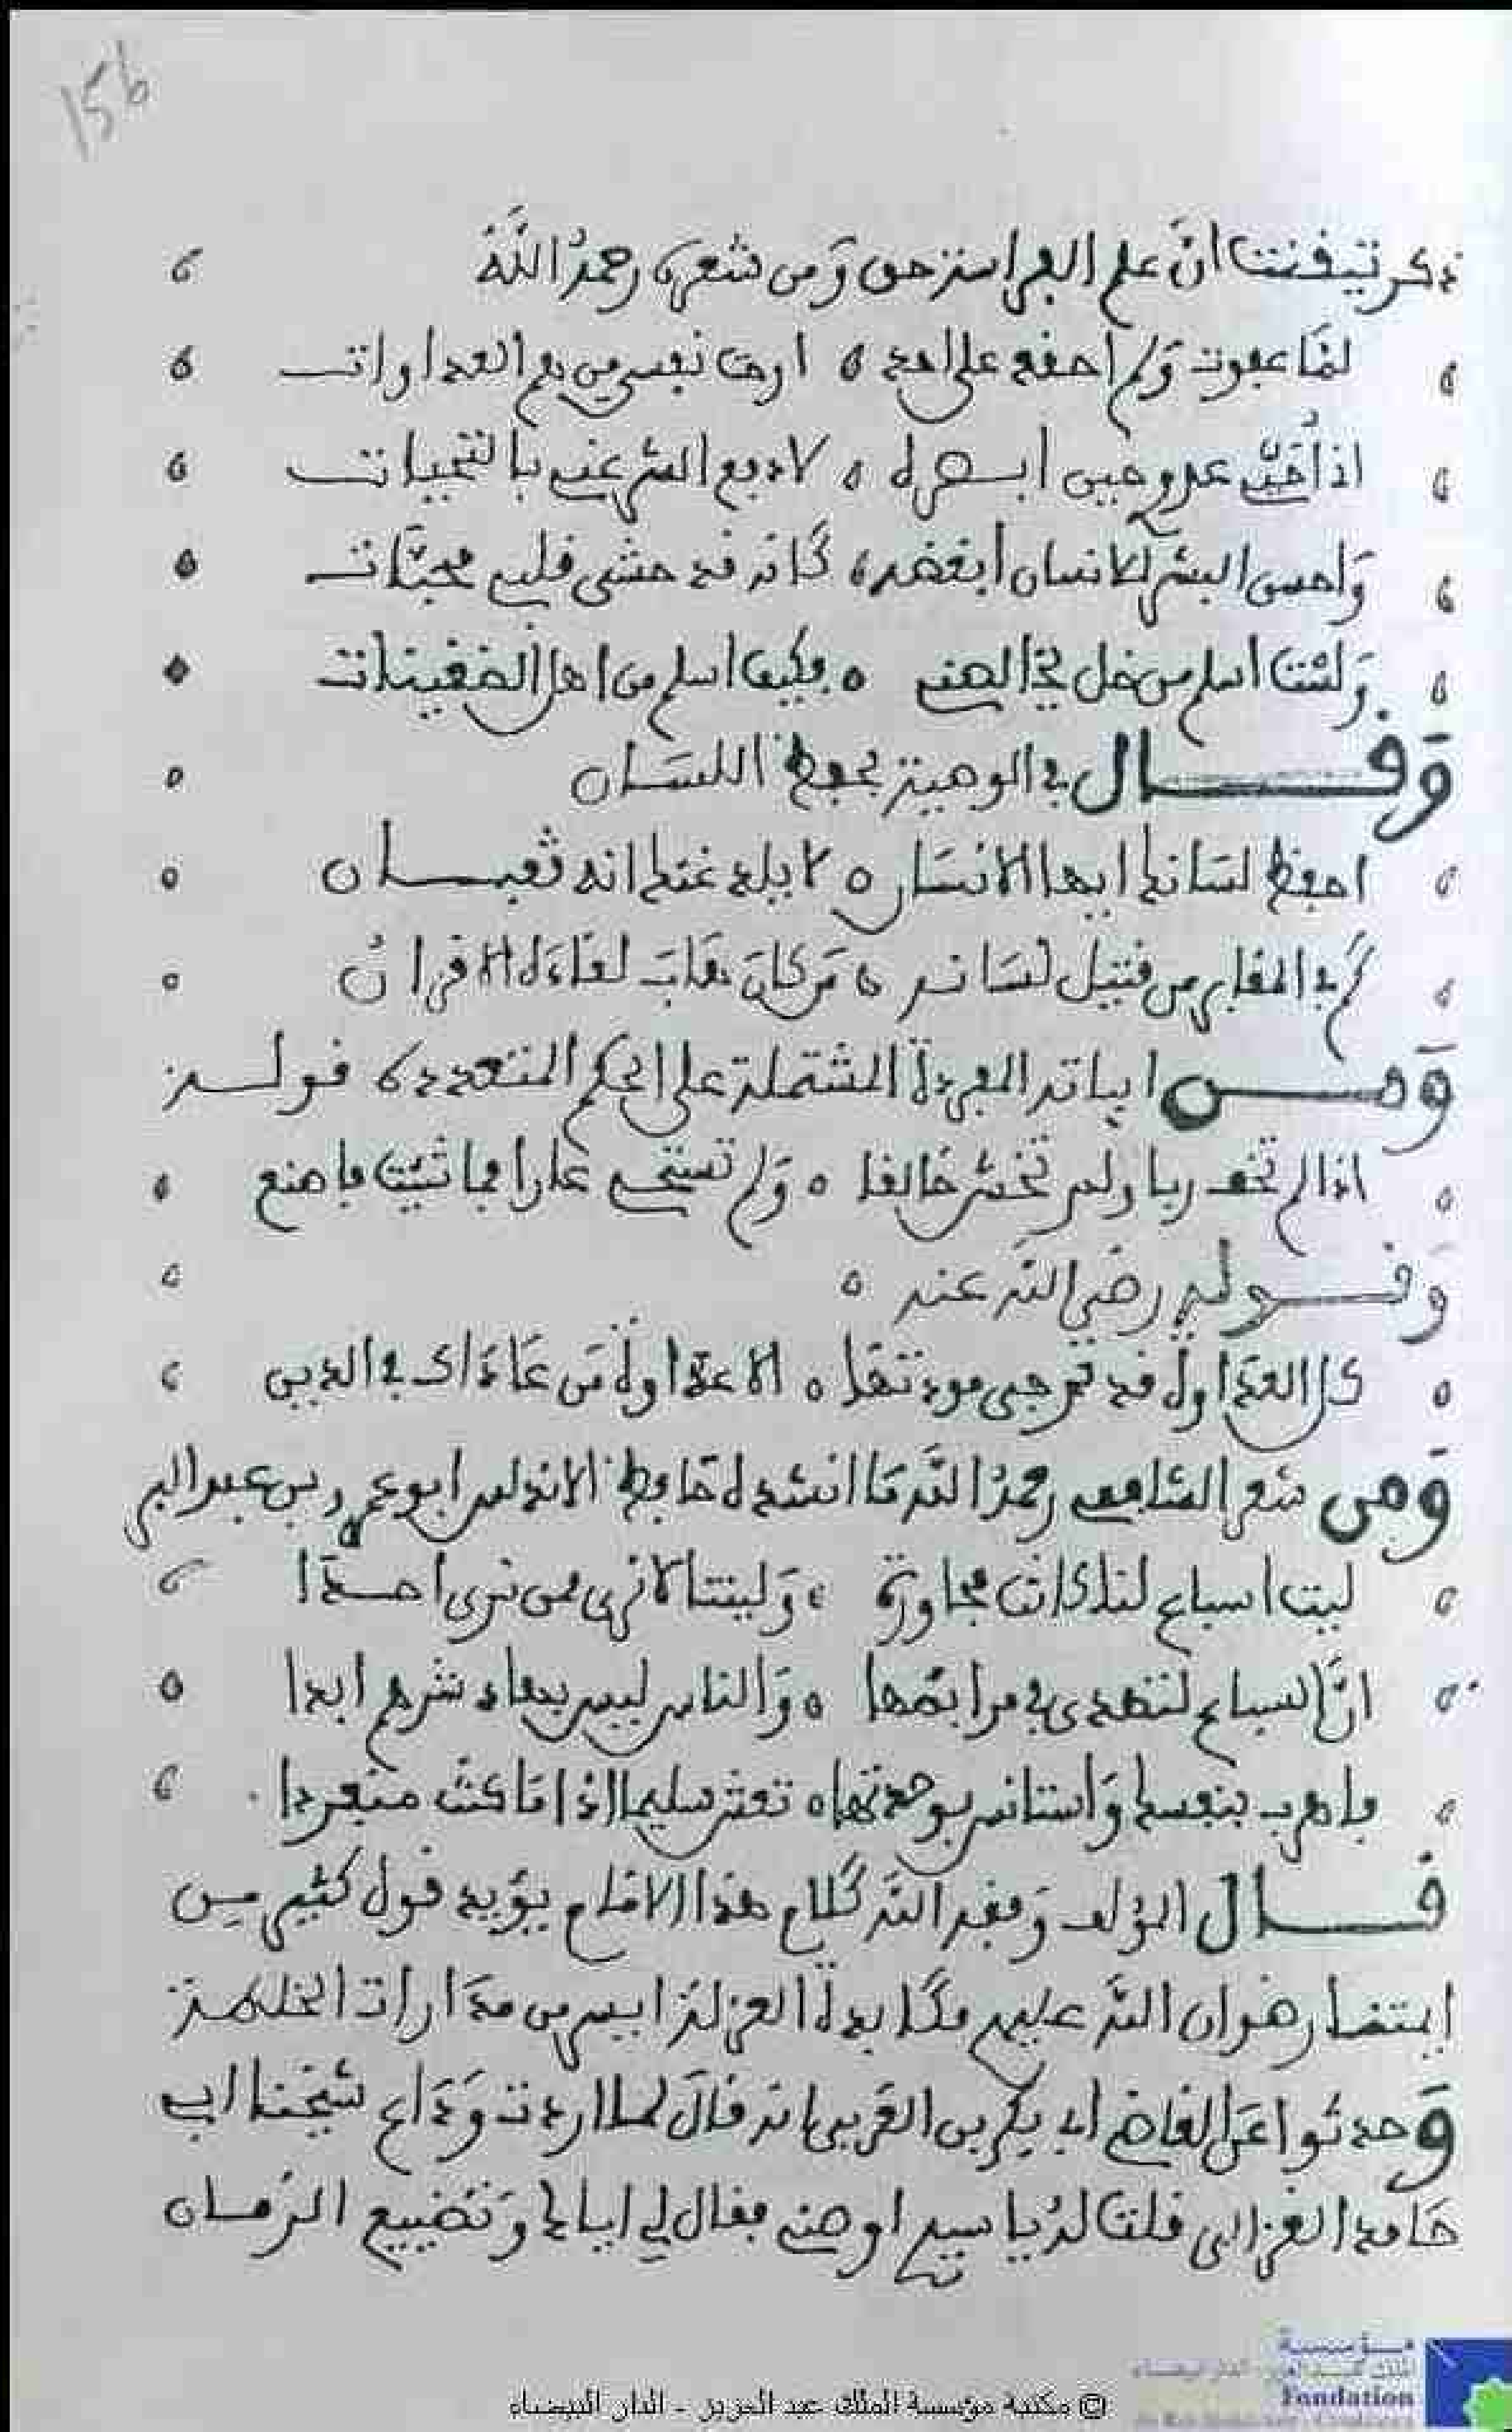 156
ذكر تيقنت ان علم الفراسة حق وَمن شعره رحمهُ اللَّه
لمَّا عفوت وَلم احقد على احد ه ارحت نفسي من هم العداوات
اني أُحَيّي عدوي حين ابصره ه لادفع الشر عني بالتحيات
وَاحسن البشر للانسان أبغضه ه كَانه قد حشى قلبي محبَّات
وَلست اسلم من خل يخالطني ه فكيف اسلم من اهل الضغينات
وَقال في الوصية بحفظ اللسَان
احفظ لسَانك ايها الانسَان ه لا يلدغنك انه ثعبان
كَم في المقابر من قتيل لسَانه ه مَن كانَ هَابَ لقاءَه الاقرانُ
وَمن ابياته المفردة المشتملة على الحكم المتعددة قوله
اذا لم تخف ربا ولم تخش خَالقا ه وَلم تستحي عارا فما شيت فاصنع
وَقوله رضي اللَّه عنه ه
كل العدَاوة قد ترجى مودتهَا ه الا عدَاوة مَن عَادَاك في الدين
وَمن شعر الشافعي رحمهُ اللَّه مَا انشده حَافظ الاندلس ابو عمر بن عبد البر
ليت السباع لنا كانت مجاورة ه وَليتنا لا نرى ممن نرى احدَا
انَّ السباع لتهدى في مرابضها ه وَالناس ليس بهاد شرهم ابدا
فاهرب بنفسك وَاستانس بوحدتها ه تعش سليما اذا مَا كنت منفردا
قال المؤلف وَفقه اللَّه كَلام هذا الامَام يؤيد قول كثير من
ايمتنا رضوان اللَّه عليهم مكَابدة العزلة ايسر من مدَارات الخلطة
وَحدثوا عَن القاضي ابي بكر بن العَربي انه قَالَ لما اردت وَدَاع شيخنا ابي
حَامد الغزالي قلت لهُ يا سيدي اوصني فقال لي اياك وَتضييع الزمان
مؤسسة
الملك عبد العزيز - الدار البيضاء
Fondation
© مكتبة مؤسسة الملك عبد العزيز - الدار البيضاء